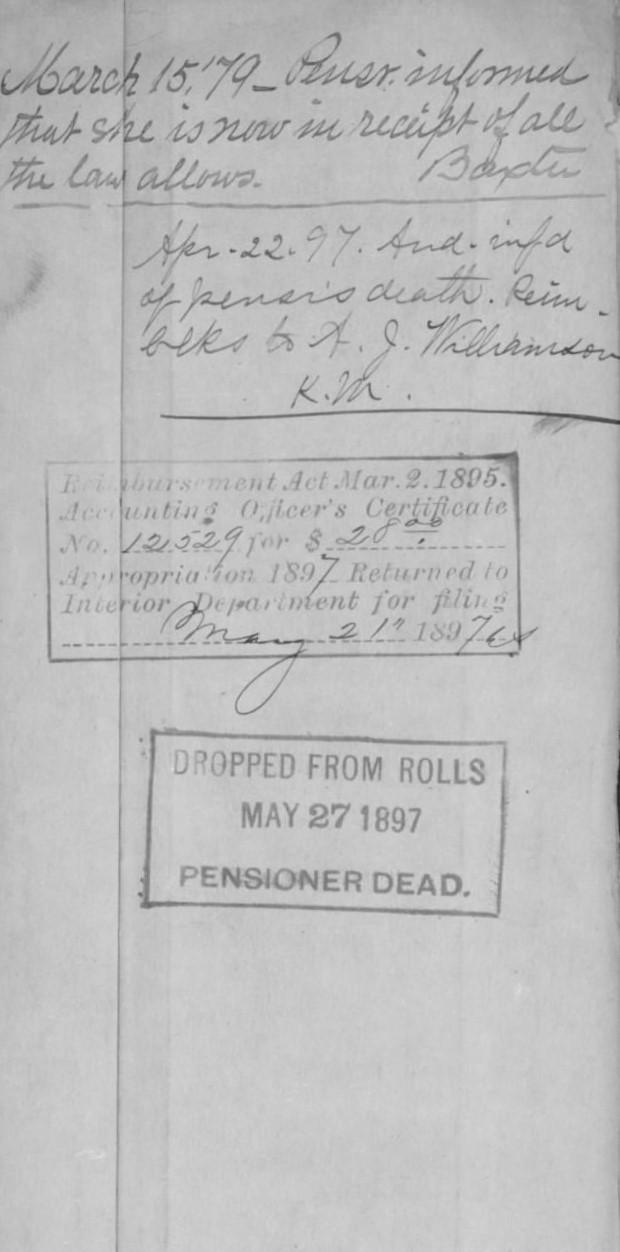 March 15, '79 – Pensr. informed
that she is now in receipt of all
the law allows. Baxter
Apr. 22. 97. Aud. inf'd
of pensr's death. Reim.
blks to A. J. Williamson
K. M.
Reimbursement Act Mar. 2. 1895.
Accounting Officer's Certificate
No. 121529 for $ 28 00
Appropriation 1897 Returned to
Interior Department for filing
May 21" 1897
DROPPED FROM ROLLS
MAY 27 1897
PENSIONER DEAD.